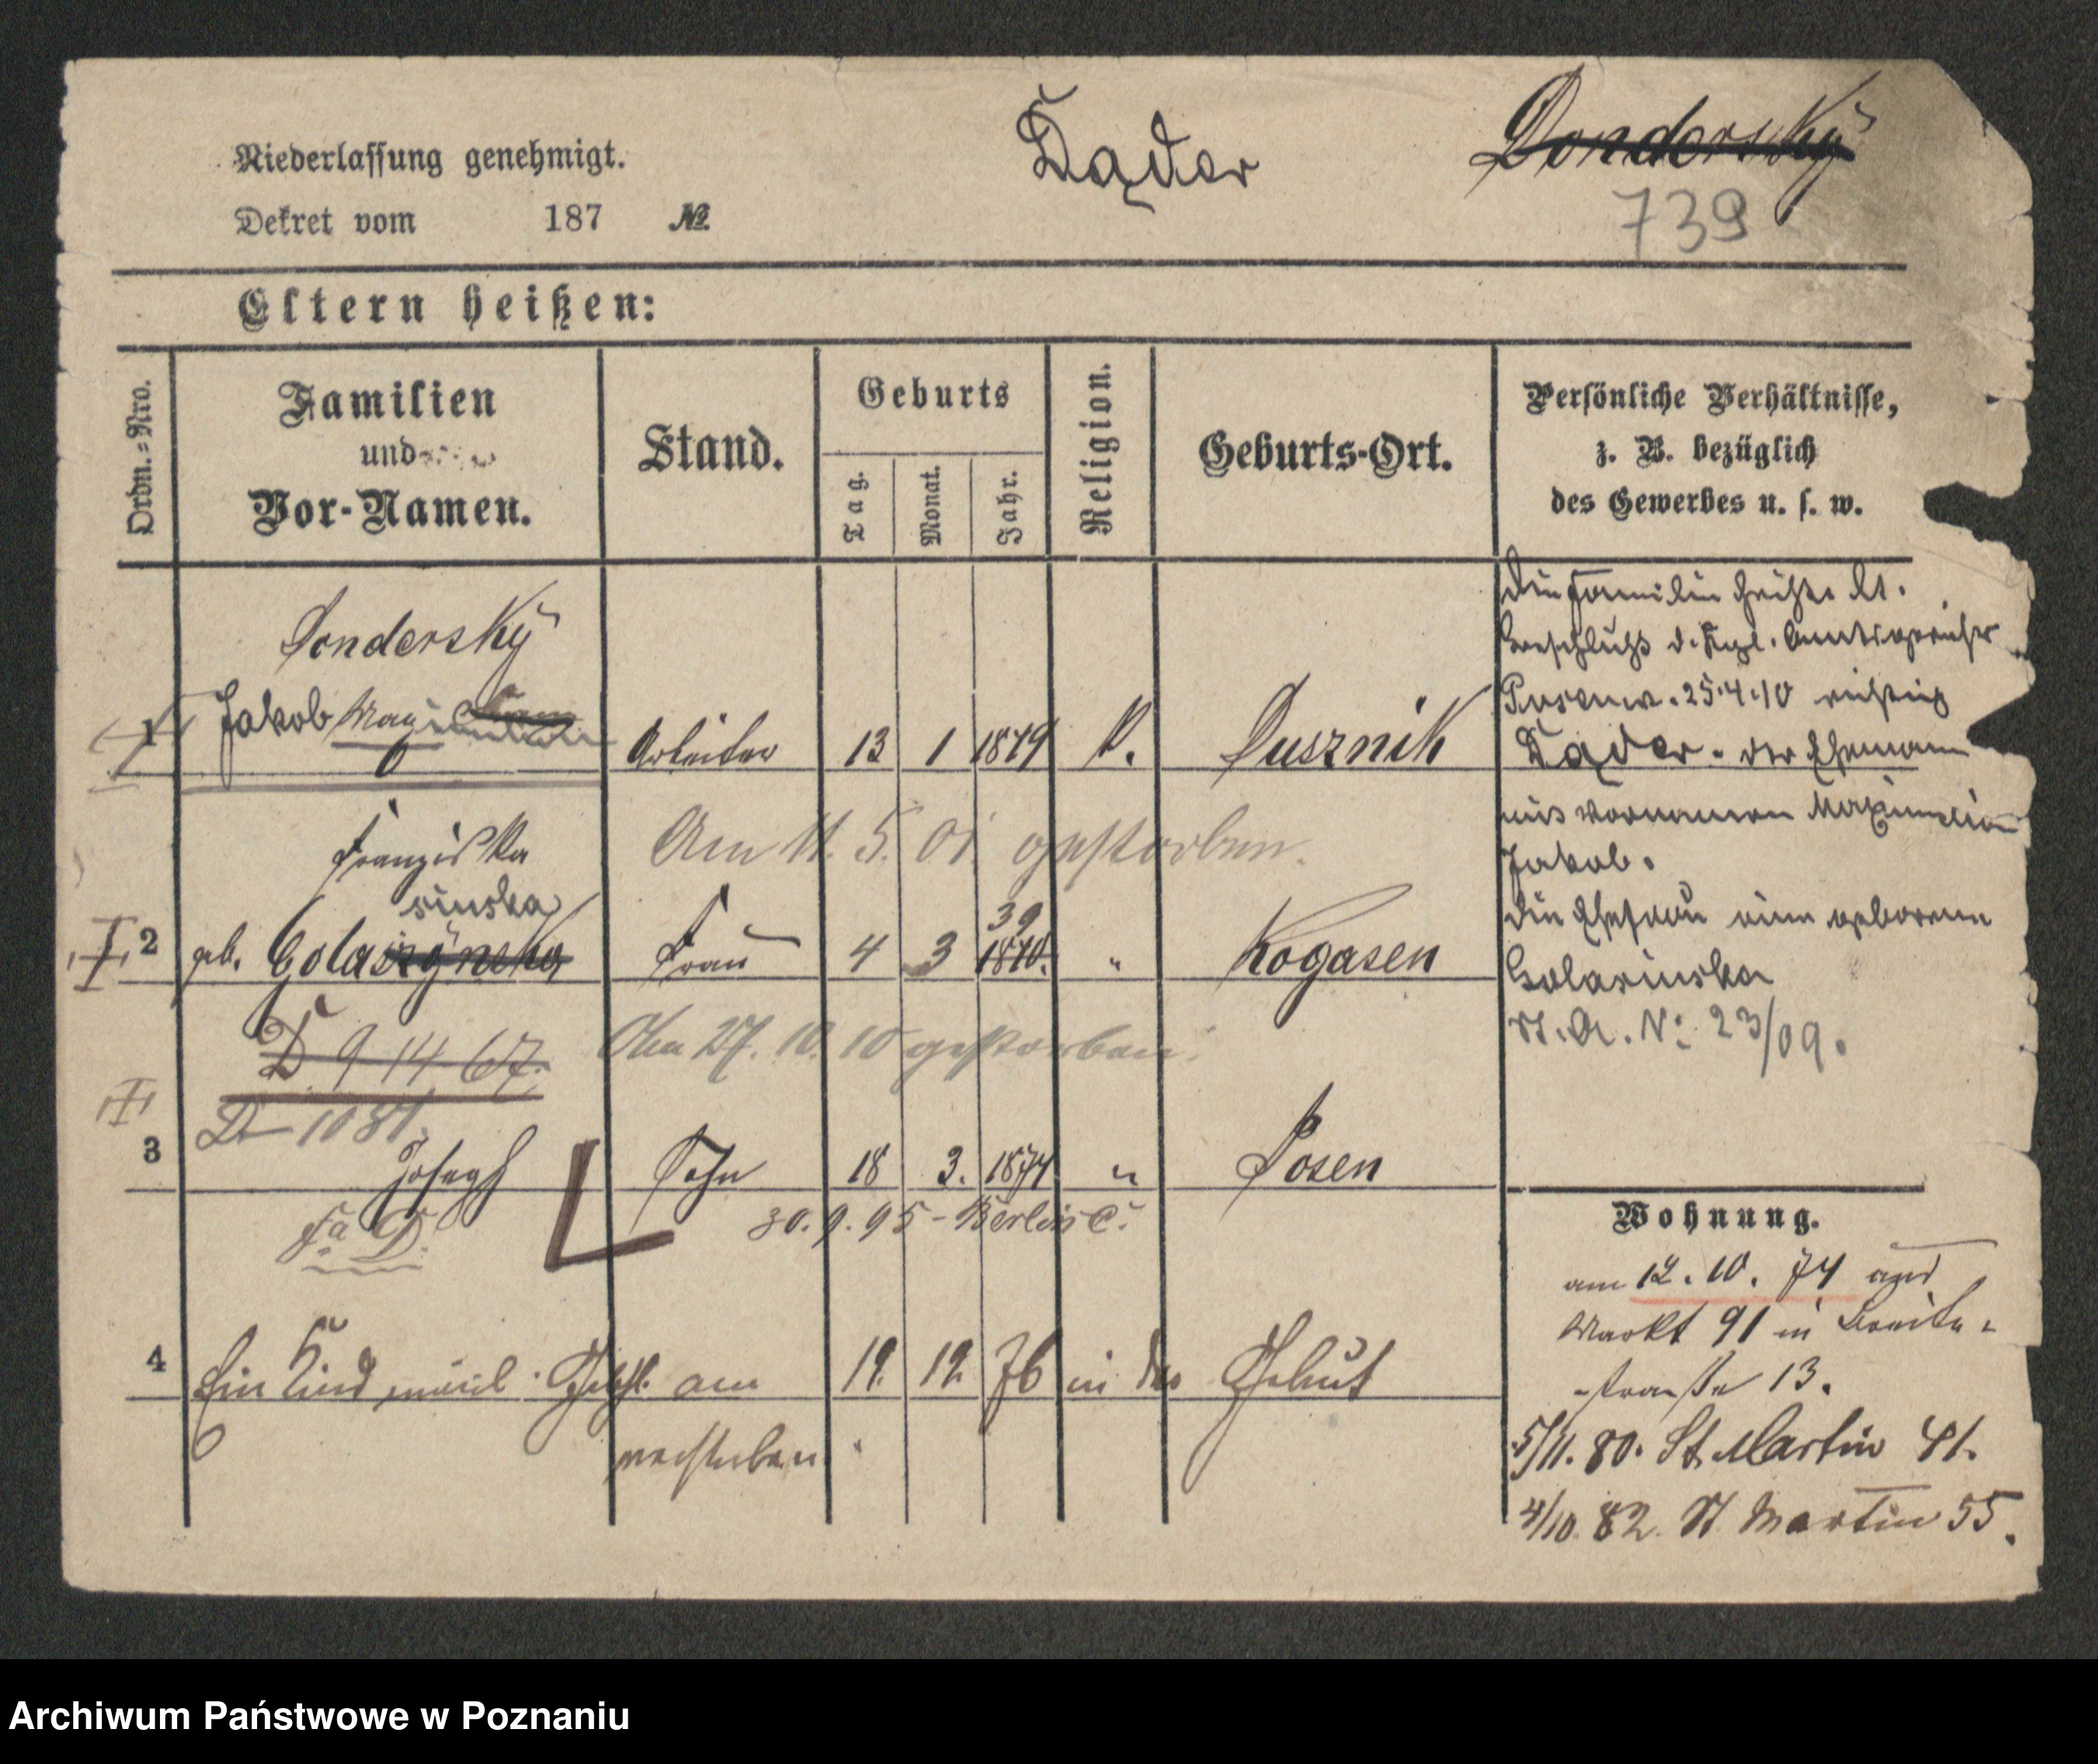 Dader
Dondersky
Niederlassung genehmigt.
Dekret vom 187 №
739
Eltern heißen:
Ordn.=Nro.
Familien
und
Vor-Namen.
Stand.
Geburts
Tag.
Monat.
Jahr.
Religion.
Geburts-Ort.
Persönliche Verhältnisse,
z. B. bezüglich
des Gewerbes u. s. w.
Dondersky
1 Jakob Arbeiter 13 1 1849 K. Dusznik
Franziska
Am 11. 5. 01. gestorben.
sinska
39
2 geb. Golaszynska Frau 4 3 1840. " Rogasen
D 9 14 67.
Am 27. 10. 10 gestorben.
3 Joseph Sohn 18 3. 1874 " Posen
30. 9. 95 - Berlin C.
4 Ein Kind männl. Geschl. am 19. 12 76 in der Geburt
verstorben.
Die Familie heißt lt.
Beschluß d. Kgl. Amtsgerichts
Posen v. 25.4.10 richtig
Dader. der Ehemann
mit Vornamen Maximilian
Jakob.
die Ehefrau eine geborene
Golasinska
St. A. N: 23/09.
Wohnung.
am 12. 10. 74 aus
Markt 91 in Breite-
-straße 13.
5/11. 80. St. Martin 41.
4/10. 82. St Martin 55.
Archiwum Państwowe w Poznaniu